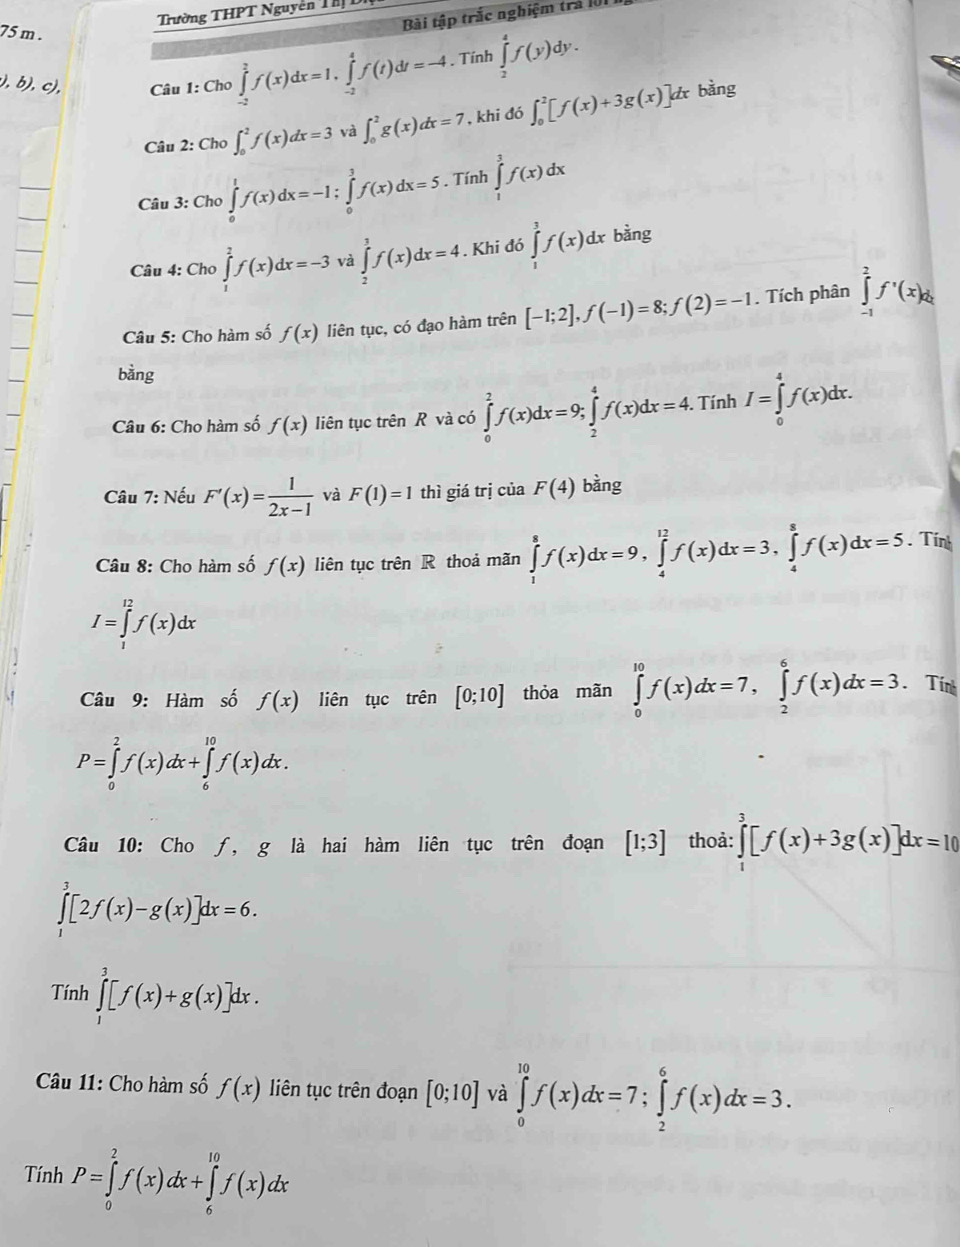 75 m .
Trường THPT Nguyễn
Bài tập trắc nghiệm trả
), b), c),
Câu 1: Cho $\int_{-2}^{2} f(x)dx = 1$, $\int_{-2}^{4} f(t)dt = -4$. Tính $\int_{2}^{4} f(y)dy$.
Câu 2: Cho $\int_{0}^{2} f(x)dx = 3$ và $\int_{0}^{2} g(x)dx = 7$, khi đó $\int_{0}^{2} [f(x)+3g(x)]dx$ bằng
Câu 3: Cho $\int_{0}^{1} f(x)dx = -1$; $\int_{0}^{3} f(x)dx = 5$. Tính $\int_{1}^{3} f(x)dx$
Câu 4: Cho $\int_{1}^{2} f(x)dx = -3$ và $\int_{2}^{3} f(x)dx = 4$. Khi đó $\int_{1}^{3} f(x)dx$ bằng
Câu 5: Cho hàm số $f(x)$ liên tục, có đạo hàm trên $[-1;2]$, $f(-1) = 8; f(2) = -1$. Tích phân $\int_{-1}^{2} f'(x)dx$
bằng
Câu 6: Cho hàm số $f(x)$ liên tục trên $R$ và có $\int_{0}^{2} f(x)dx = 9$; $\int_{2}^{4} f(x)dx = 4$. Tính $I = \int_{0}^{4} f(x)dx$.
Câu 7: Nếu $F'(x) = \frac{1}{2x-1}$ và $F(1) = 1$ thì giá trị của $F(4)$ bằng
Câu 8: Cho hàm số $f(x)$ liên tục trên ℝ thoả mãn $\int_{1}^{8} f(x)dx = 9$, $\int_{4}^{12} f(x)dx = 3$, $\int_{4}^{8} f(x)dx = 5$. Tính
$I = \int_{1}^{12} f(x)dx$
Câu 9: Hàm số $f(x)$ liên tục trên $[0;10]$ thỏa mãn $\int_{0}^{10} f(x)dx = 7$, $\int_{2}^{6} f(x)dx = 3$. Tính
$P = \int_{0}^{2} f(x)dx + \int_{6}^{10} f(x)dx$.
Câu 10: Cho $f$, $g$ là hai hàm liên tục trên đoạn $[1;3]$ thoả: $\int_{1}^{3} [f(x)+3g(x)]dx = 10$
$\int_{1}^{3} [2f(x)-g(x)]dx = 6$.
Tính $\int_{1}^{3} [f(x)+g(x)]dx$.
Câu 11: Cho hàm số $f(x)$ liên tục trên đoạn $[0;10]$ và $\int_{0}^{10} f(x)dx = 7$; $\int_{2}^{6} f(x)dx = 3$.
Tính $P = \int_{0}^{2} f(x)dx + \int_{6}^{10} f(x)dx$